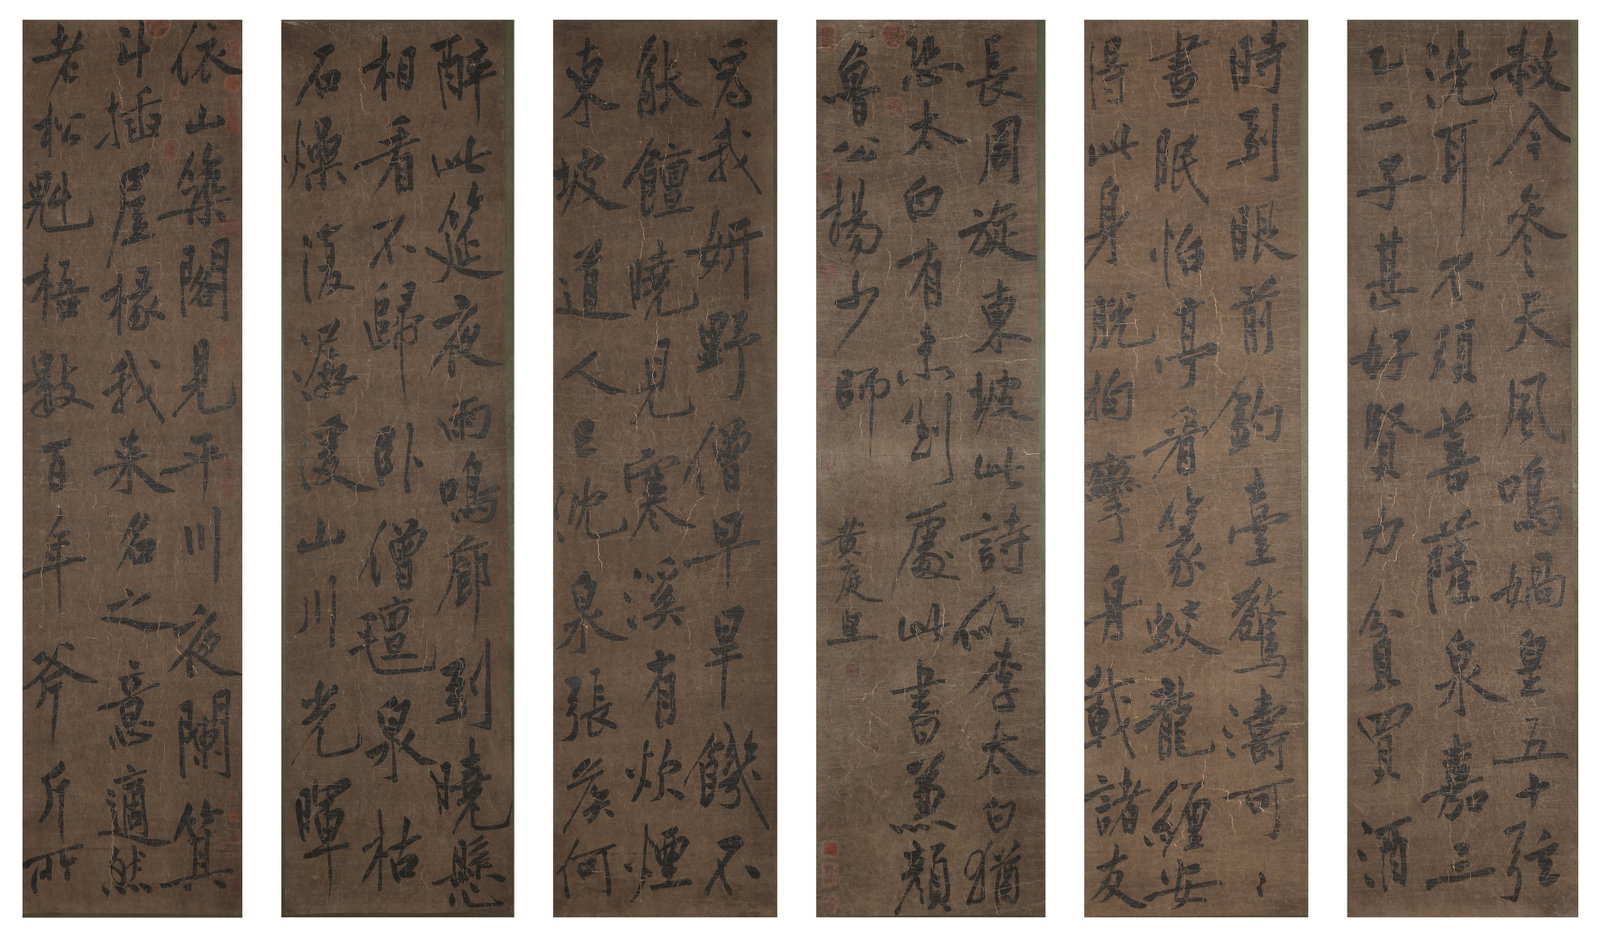 依山築閣見平川夜闌箕
斗插屋椽我來名之意適然
老松魁梧數百年斧斤所
赦今參天風鳴媧皇五十弦
洗耳不須菩薩泉嘉三
〻二子甚好賢力貧買酒
醉此筵夜雨鳴廊到曉懸
相看不歸臥僧氈泉枯
石燥復潺湲山川光暉
爲我妍野僧早旱饑不
能饘曉見寒溪有炊煙
東坡道人已沈泉張侯何
時到眼前釣臺驚濤可〻
晝眠怡亭看篆蛟龍纏安
得此身脫拘攣舟載諸友
長周旋東坡此詩似李太白猶
恐太白有未到處此書兼顏
魯公楊少師
黃庭堅